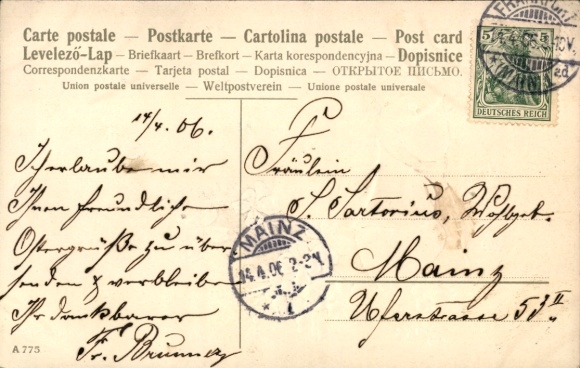 Carte postale – Postkarte – Cartolina postale – Post card
Levelező-Lap – Briefkaart – Brefkort – Karta korespondencyjna – Dopisnice
Correspondenzkarte – Tarjeta postal – Dopisnica – ОТКРЫТОЕ ПИСЬМО.
Union postale universelle – Weltpostverein – Unione postale universale
5
DEUTSCHES REICH
14/4. 06.
Ich erlaube mir
Ihnen freundliche
Ostergrüße zu über
senden & verbleibe
Ihr dankbarer
Fr. Brunner
Fräulein
S. Sartorius, Wohlgeb.
Mainz
Uferstrasse 53 II
MAINZ
14.4.06. 2-3N.
* 1
A 775